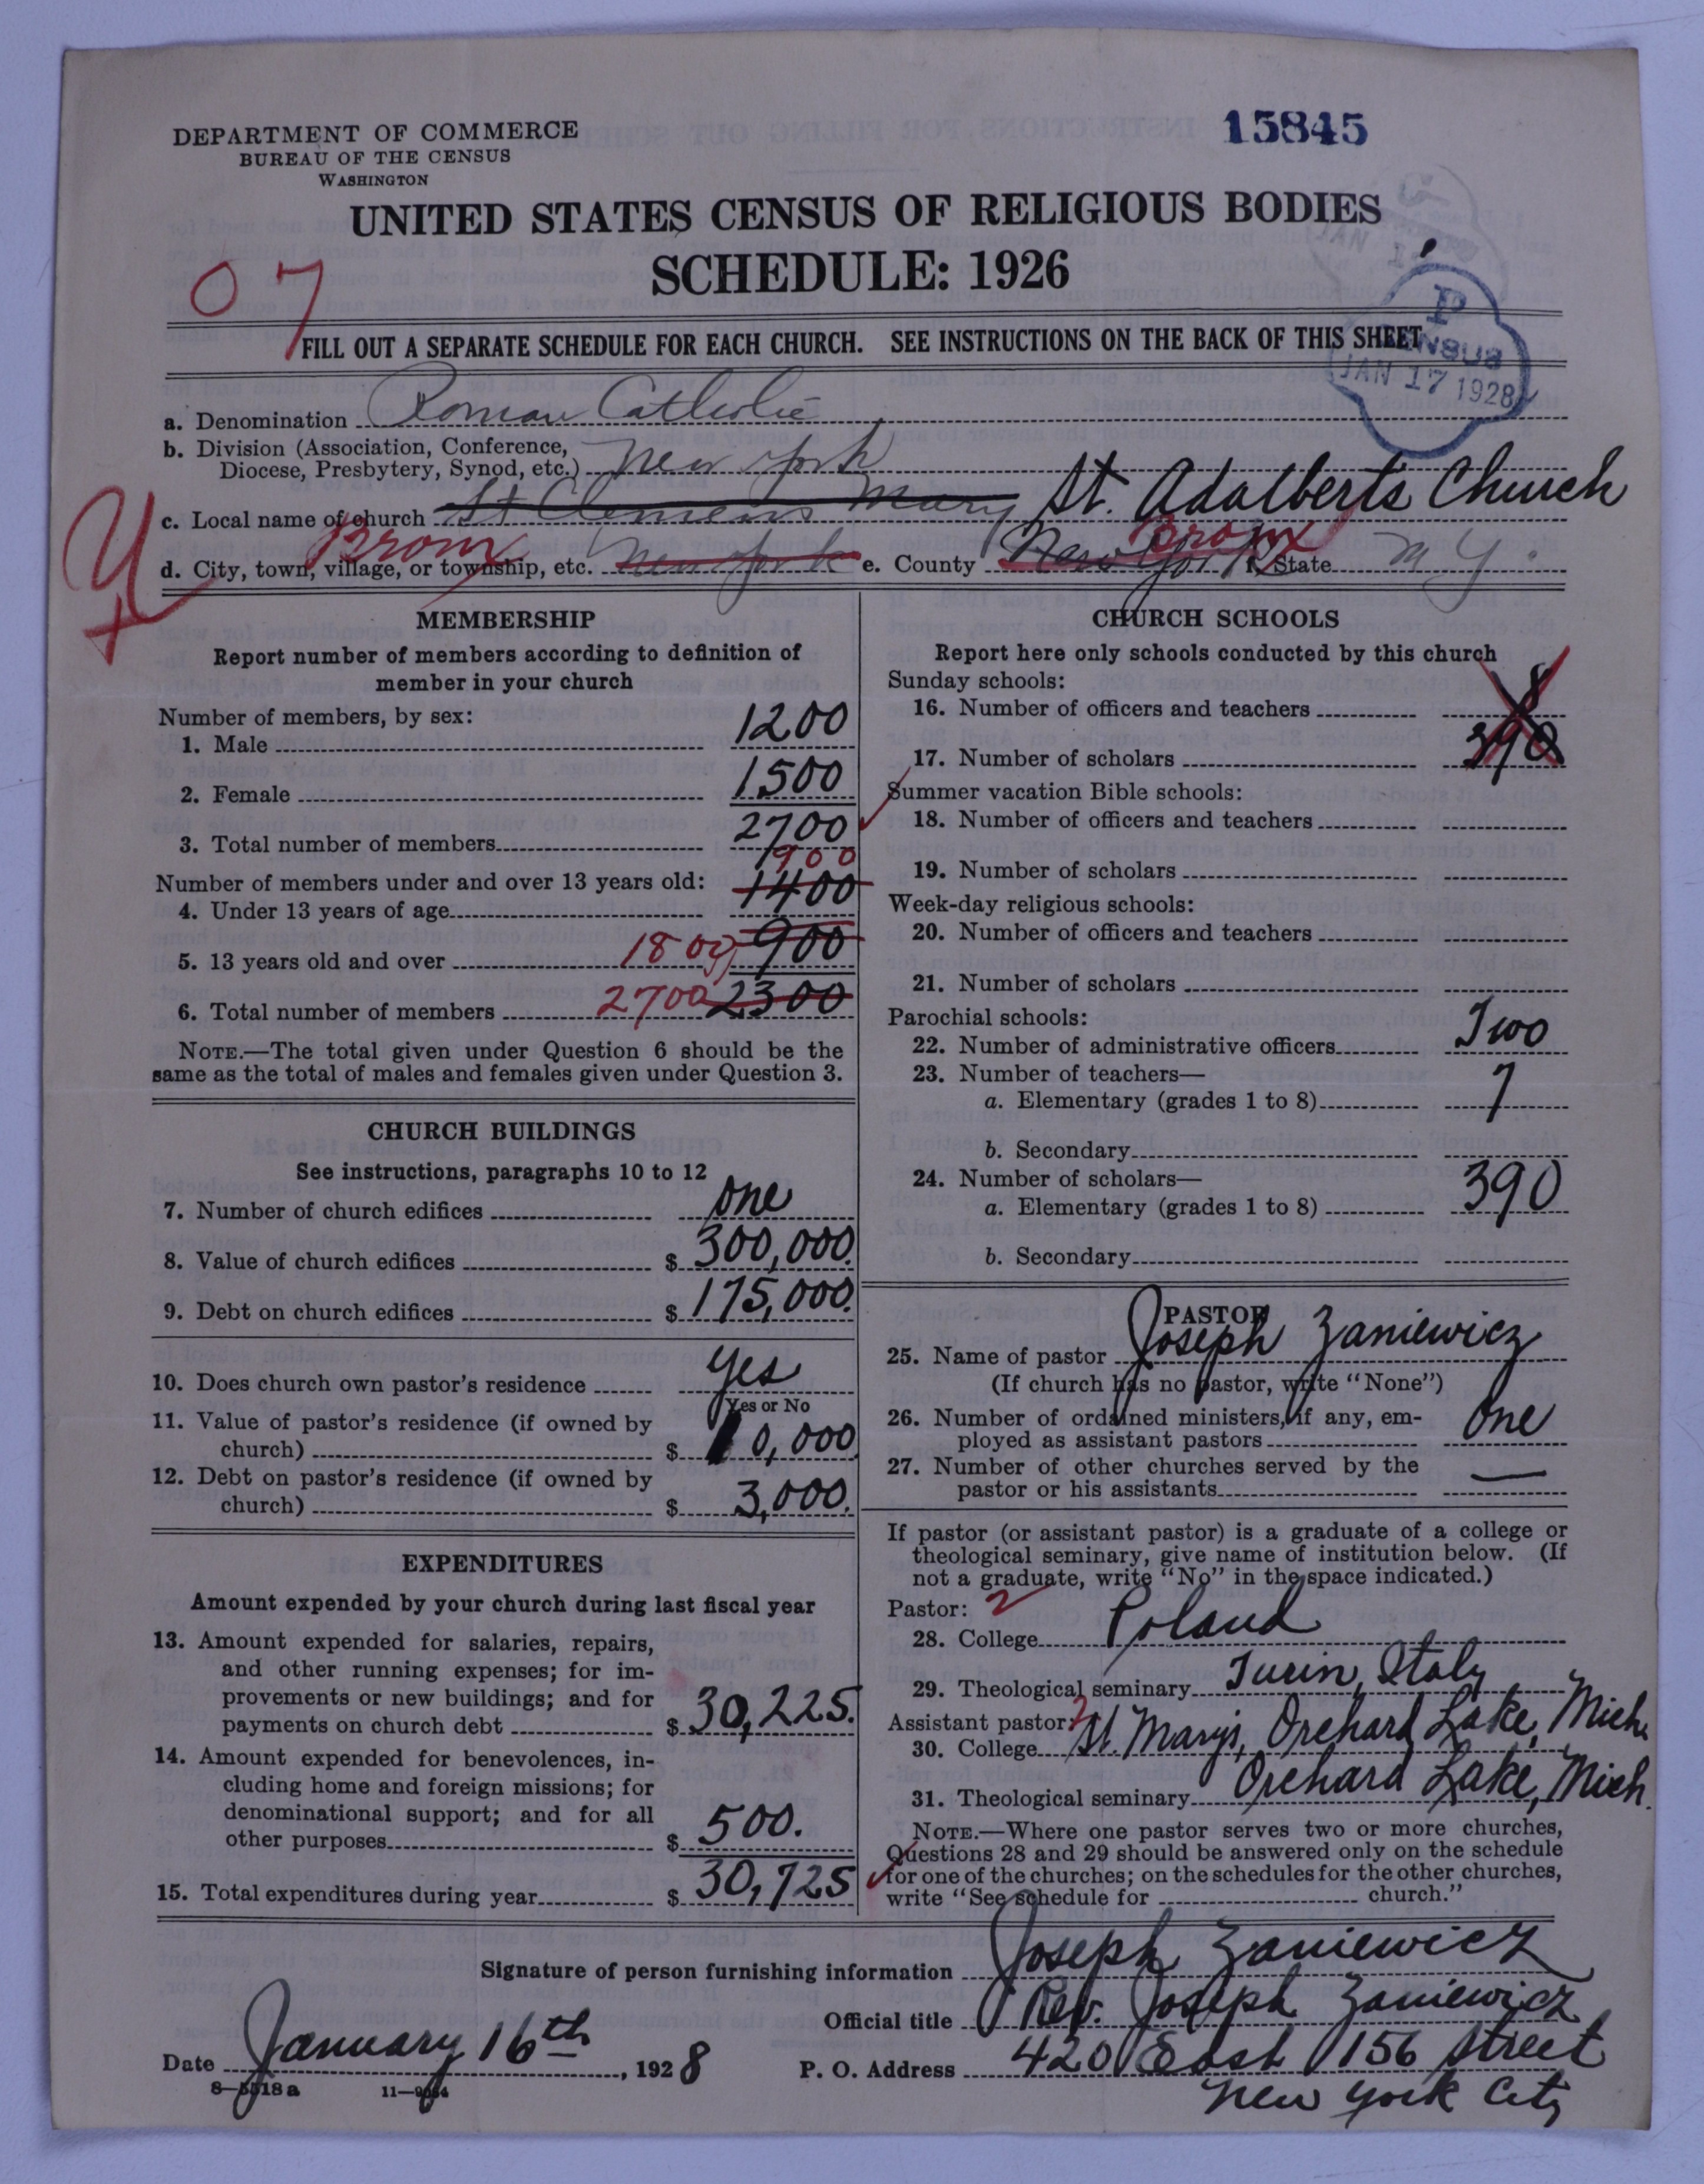 15845
DEPARTMENT OF COMMERCE
BUREAU OF THE CENSUS
WASHINGTON
UNITED STATES CENSUS OF RELIGIOUS BODIES
SCHEDULE: 1926
07
P
CENSUS
JAN 17 1928
FILL OUT A SEPARATE SCHEDULE FOR EACH CHURCH. SEE INSTRUCTIONS ON THE BACK OF THIS SHEET
a. Denomination Roman Catholic
b. Division (Association, Conference,
Diocese, Presbytery, Synod, etc.) New York
c. Local name of church St Clemens Mary St. Adalberts Church
d. City, town, village, or township, etc. New York Bronx e. County New York Bronx f. State N Y.
MEMBERSHIP
Report number of members according to definition of
member in your church
Number of members, by sex:
1. Male 1200
2. Female 1500
3. Total number of members 2700
Number of members under and over 13 years old:
4. Under 13 years of age 1400 900
5. 13 years old and over 1800 900
6. Total number of members 2700 2300
NOTE.—The total given under Question 6 should be the
same as the total of males and females given under Question 3.
CHURCH BUILDINGS
See instructions, paragraphs 10 to 12
7. Number of church edifices one
8. Value of church edifices $ 300,000.
9. Debt on church edifices $ 175,000.
10. Does church own pastor's residence yes
Yes or No
11. Value of pastor's residence (if owned by
church) $ 10,000
12. Debt on pastor's residence (if owned by
church) $ 3,000.
EXPENDITURES
Amount expended by your church during last fiscal year
13. Amount expended for salaries, repairs,
and other running expenses; for im-
provements or new buildings; and for
payments on church debt $ 30,225.
14. Amount expended for benevolences, in-
cluding home and foreign missions; for
denominational support; and for all
other purposes $ 500.
15. Total expenditures during year $ 30,725
CHURCH SCHOOLS
Report here only schools conducted by this church
Sunday schools:
16. Number of officers and teachers 8
17. Number of scholars 390
Summer vacation Bible schools:
18. Number of officers and teachers
19. Number of scholars
Week-day religious schools:
20. Number of officers and teachers
21. Number of scholars
Parochial schools:
22. Number of administrative officers Two
23. Number of teachers—
a. Elementary (grades 1 to 8) 7
b. Secondary
24. Number of scholars—
a. Elementary (grades 1 to 8) 390
b. Secondary
PASTOR
25. Name of pastor Joseph Zaniewicz
(If church has no pastor, write "None")
26. Number of ordained ministers, if any, em-
ployed as assistant pastors one
27. Number of other churches served by the
pastor or his assistants —
If pastor (or assistant pastor) is a graduate of a college or
theological seminary, give name of institution below. (If
not a graduate, write "No" in the space indicated.)
Pastor: 2
28. College Poland
29. Theological seminary Turin, Italy
Assistant pastor: 2
30. College St. Marys, Orchard Lake, Mich.
31. Theological seminary Orchard Lake, Mich.
NOTE.—Where one pastor serves two or more churches,
Questions 28 and 29 should be answered only on the schedule
for one of the churches; on the schedules for the other churches,
write "See schedule for church."
Signature of person furnishing information Joseph Zaniewicz
Official title Rev. Joseph Zaniewicz
Date January 16th, 1928 P. O. Address 420 East 156 Street
New York City
8—5518a 11—9054